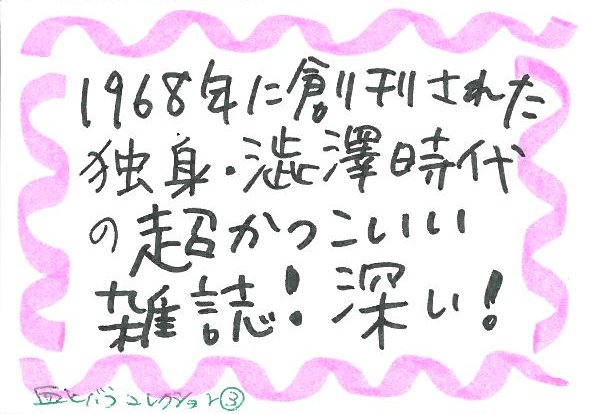 1968年に創刊された
独身・澁澤時代
の超かっこいい
雑誌！深い！
コレクション③